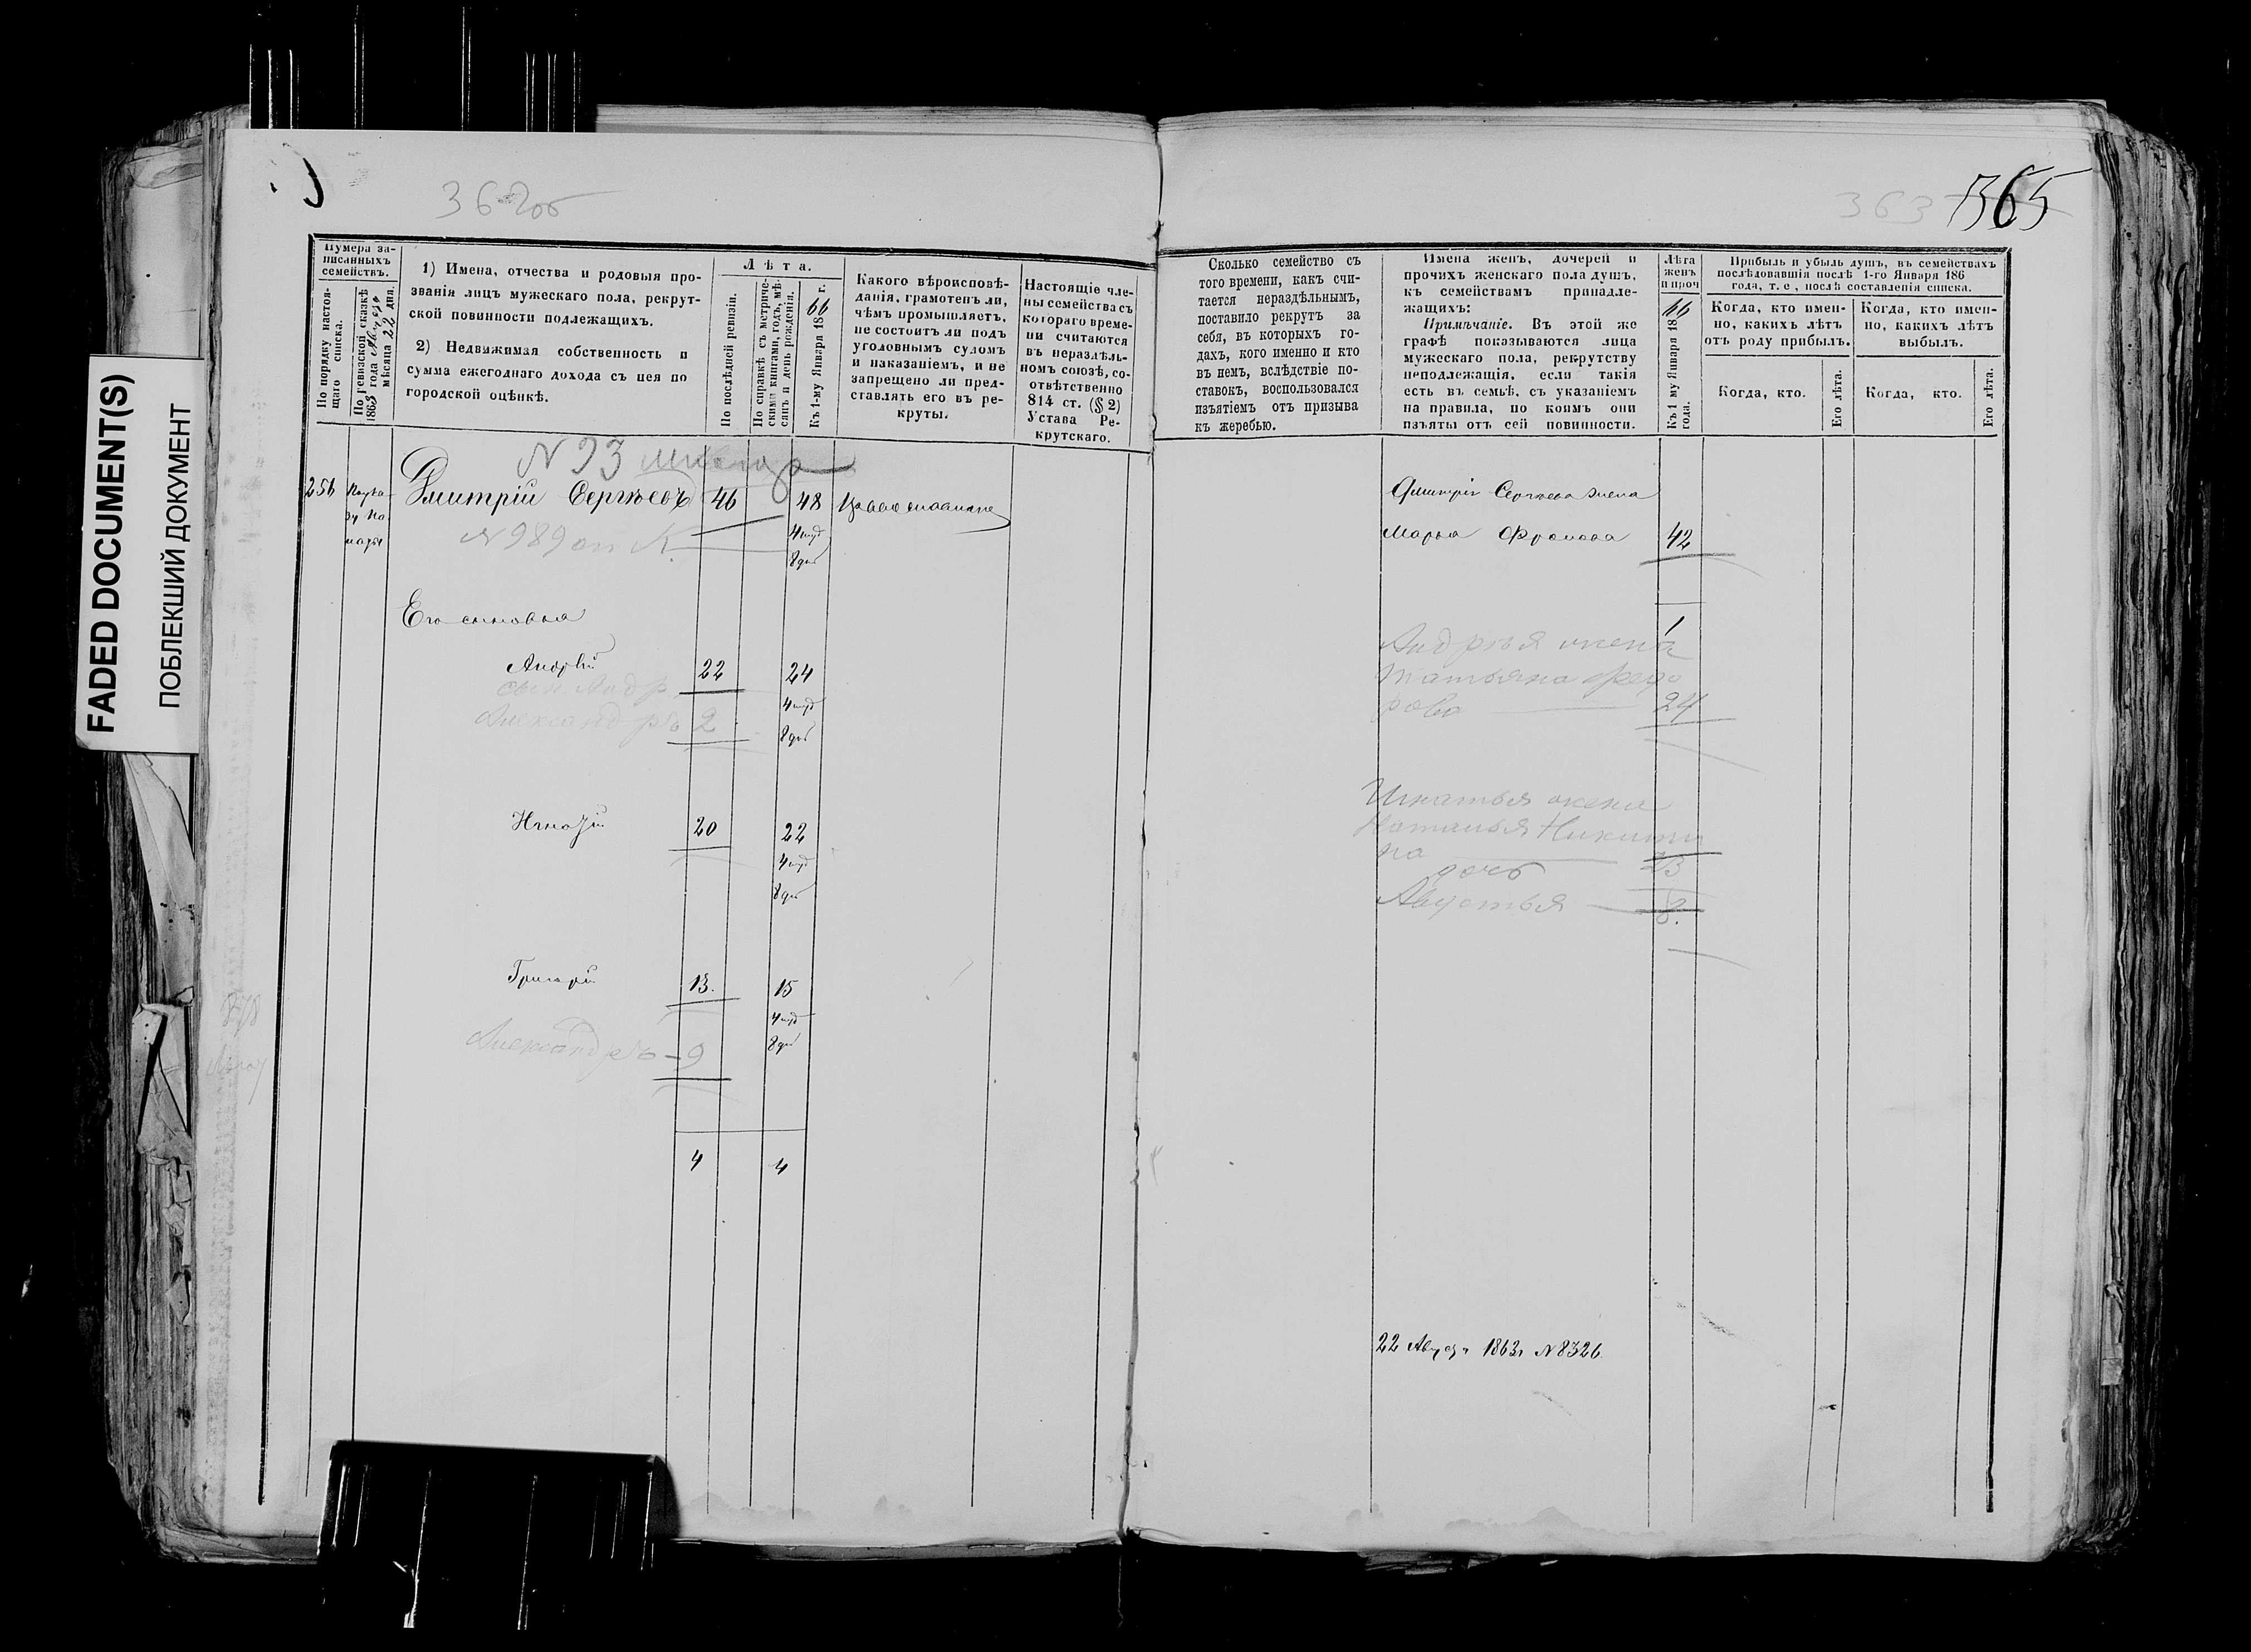 FADED DOCUMENT(S)
ПОБЛЕКШИЙ ДОКУМЕНТ
362об
363
365
Нумера записанныхъ семействъ.
По порядку настоящаго списка.
По ревизской сказкѣ 1863 года Августа мѣсяца 22 дня.
1) Имена, отчества и родовыя прозванія лицъ мужескаго пола, рекрутской повинности подлежащихъ.
2) Недвижимая собственность и сумма ежегоднаго дохода съ нея по городской оцѣнкѣ.
Лѣта.
По послѣдней ревизіи.
По справкѣ съ метрическими книгами, годъ, мѣсяцъ и день рожденія.
Къ 1-му Января 1866 г.
Какого вѣроисповѣданія, грамотенъ ли, чѣмъ промышляетъ, не состоитъ ли подъ уголовнымъ судомъ и наказаніемъ, и не запрещено ли представлять его въ рекруты.
Настоящіе члены семейства съ котораго времени считаются въ нераздѣльномъ союзѣ, соотвѣтственно 814 ст. (§ 2) Устава Рекрутскаго.
Сколько семейство съ того времени, какъ считается нераздѣльнымъ, поставило рекрутъ за себя, въ которыхъ годахъ, кого именно и кто въ немъ, вслѣдствіе поставокъ, воспользовался изъятіемъ отъ призыва къ жеребью.
Имена женъ, дочерей и прочихъ женскаго пола душъ, къ семействамъ принадлежащихъ:
Примѣчаніе. Въ этой же графѣ показываются лица мужескаго пола, рекрутству неподлежащія, если такія есть въ семьѣ, съ указаніемъ на правила, по коимъ они изъяты отъ сей повинности.
Лѣта женъ и проч
Къ 1 му Января 1866 года.
Прибыль и убыль душъ, въ семействахъ послѣдовавшія послѣ 1-го Января 186 года, т. е, послѣ составленія списка.
Когда, кто именно, какихъ лѣтъ отъ роду прибылъ.
Когда, кто именно, какихъ лѣтъ выбылъ.
Когда, кто.
Его лѣта.
Когда, кто.
Его лѣта.
N 93
256
Дмитрій Сергѣевъ 46 48
N 989
4 мѣс
8 дн
Его сыновья
Андрей 22 24
сын Андр
4 мѣс
Александръ 2
8 дн
Игнатій 20 22
4 мѣс
8 дн
Григорій 13. 15
4 мѣс
8 дн
Александръ - 9
4 4
Дмитрія Сергѣева жена
Марья Фролова 42
1
Андрѣя жена
Татьяна Федо
рова 24
Игнатья жена
Наталья Никити
на 23
дочь
Августья
22 Августа 1863 г N 8326.